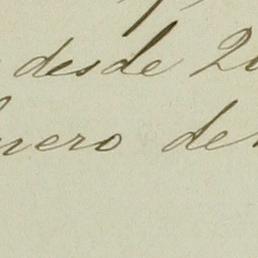 desde 2
nero de